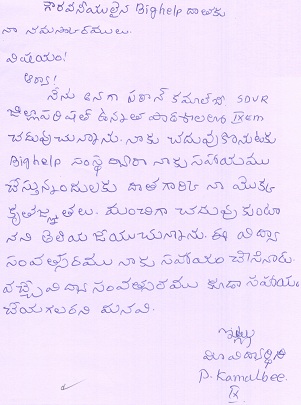 గౌరవనీయులైన Bighelp దాతకు
నా నమస్కారములు.
విషయం!
ఆర్యా!
నేను అనగా పఠాన్ కమాల్‌బీ SDVR
జిల్లాపరిషత్ ఉన్నత పాఠశాలలో IX em
చదువుచున్నాను. నాకు చదువుకొనుటకు
Bighelp సంస్థ ద్వారా నాకు సహాయము
చేస్తున్నందులకు దాతగారికి నా యొక్క
కృతజ్ఞతలు. మంచిగా చదువుకుంటా
నని తెలియజేయుచున్నాను. ఈ విద్యా
సంవత్సరము నాకు సహాయం చేసినారు.
వచ్చే విద్యా సంవత్సరము కూడా సహాయం
చేయగలరని మనవి.
ఇట్లు
మీ విద్యార్థిని
P. Kamalbee.
IX